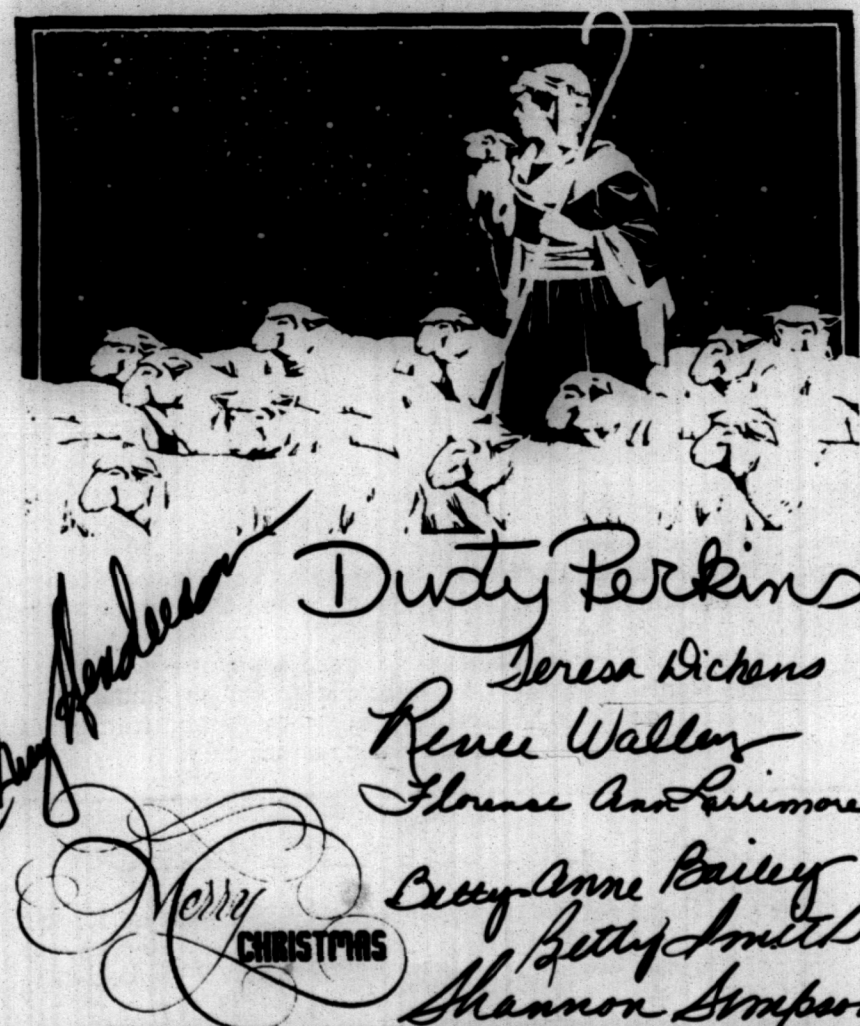 Dusty Perkins
Henderson
Teresa Dickens
Renee Walley
Florence Ann Larrimore
Betty Anne Bailey
Betty Smith
Shannon Simpson
Merry
CHRISTMAS